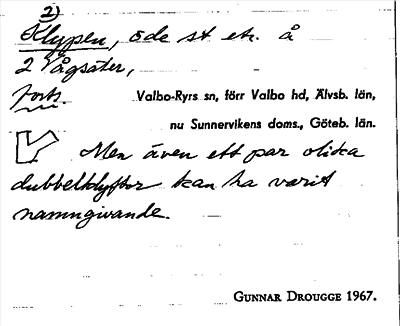 2)
Klyppen, öde st. etc. å
2 Vågsäter,
forts.
Valbo-Ryrs sn, förr Valbo hd, Älvsb. län,
nu Sunnervikens doms., Göteb. län.
Men även ett par olika
dubbelklyftor kan ha varit
namngivande.
GUNNAR DROUGGE 1967.